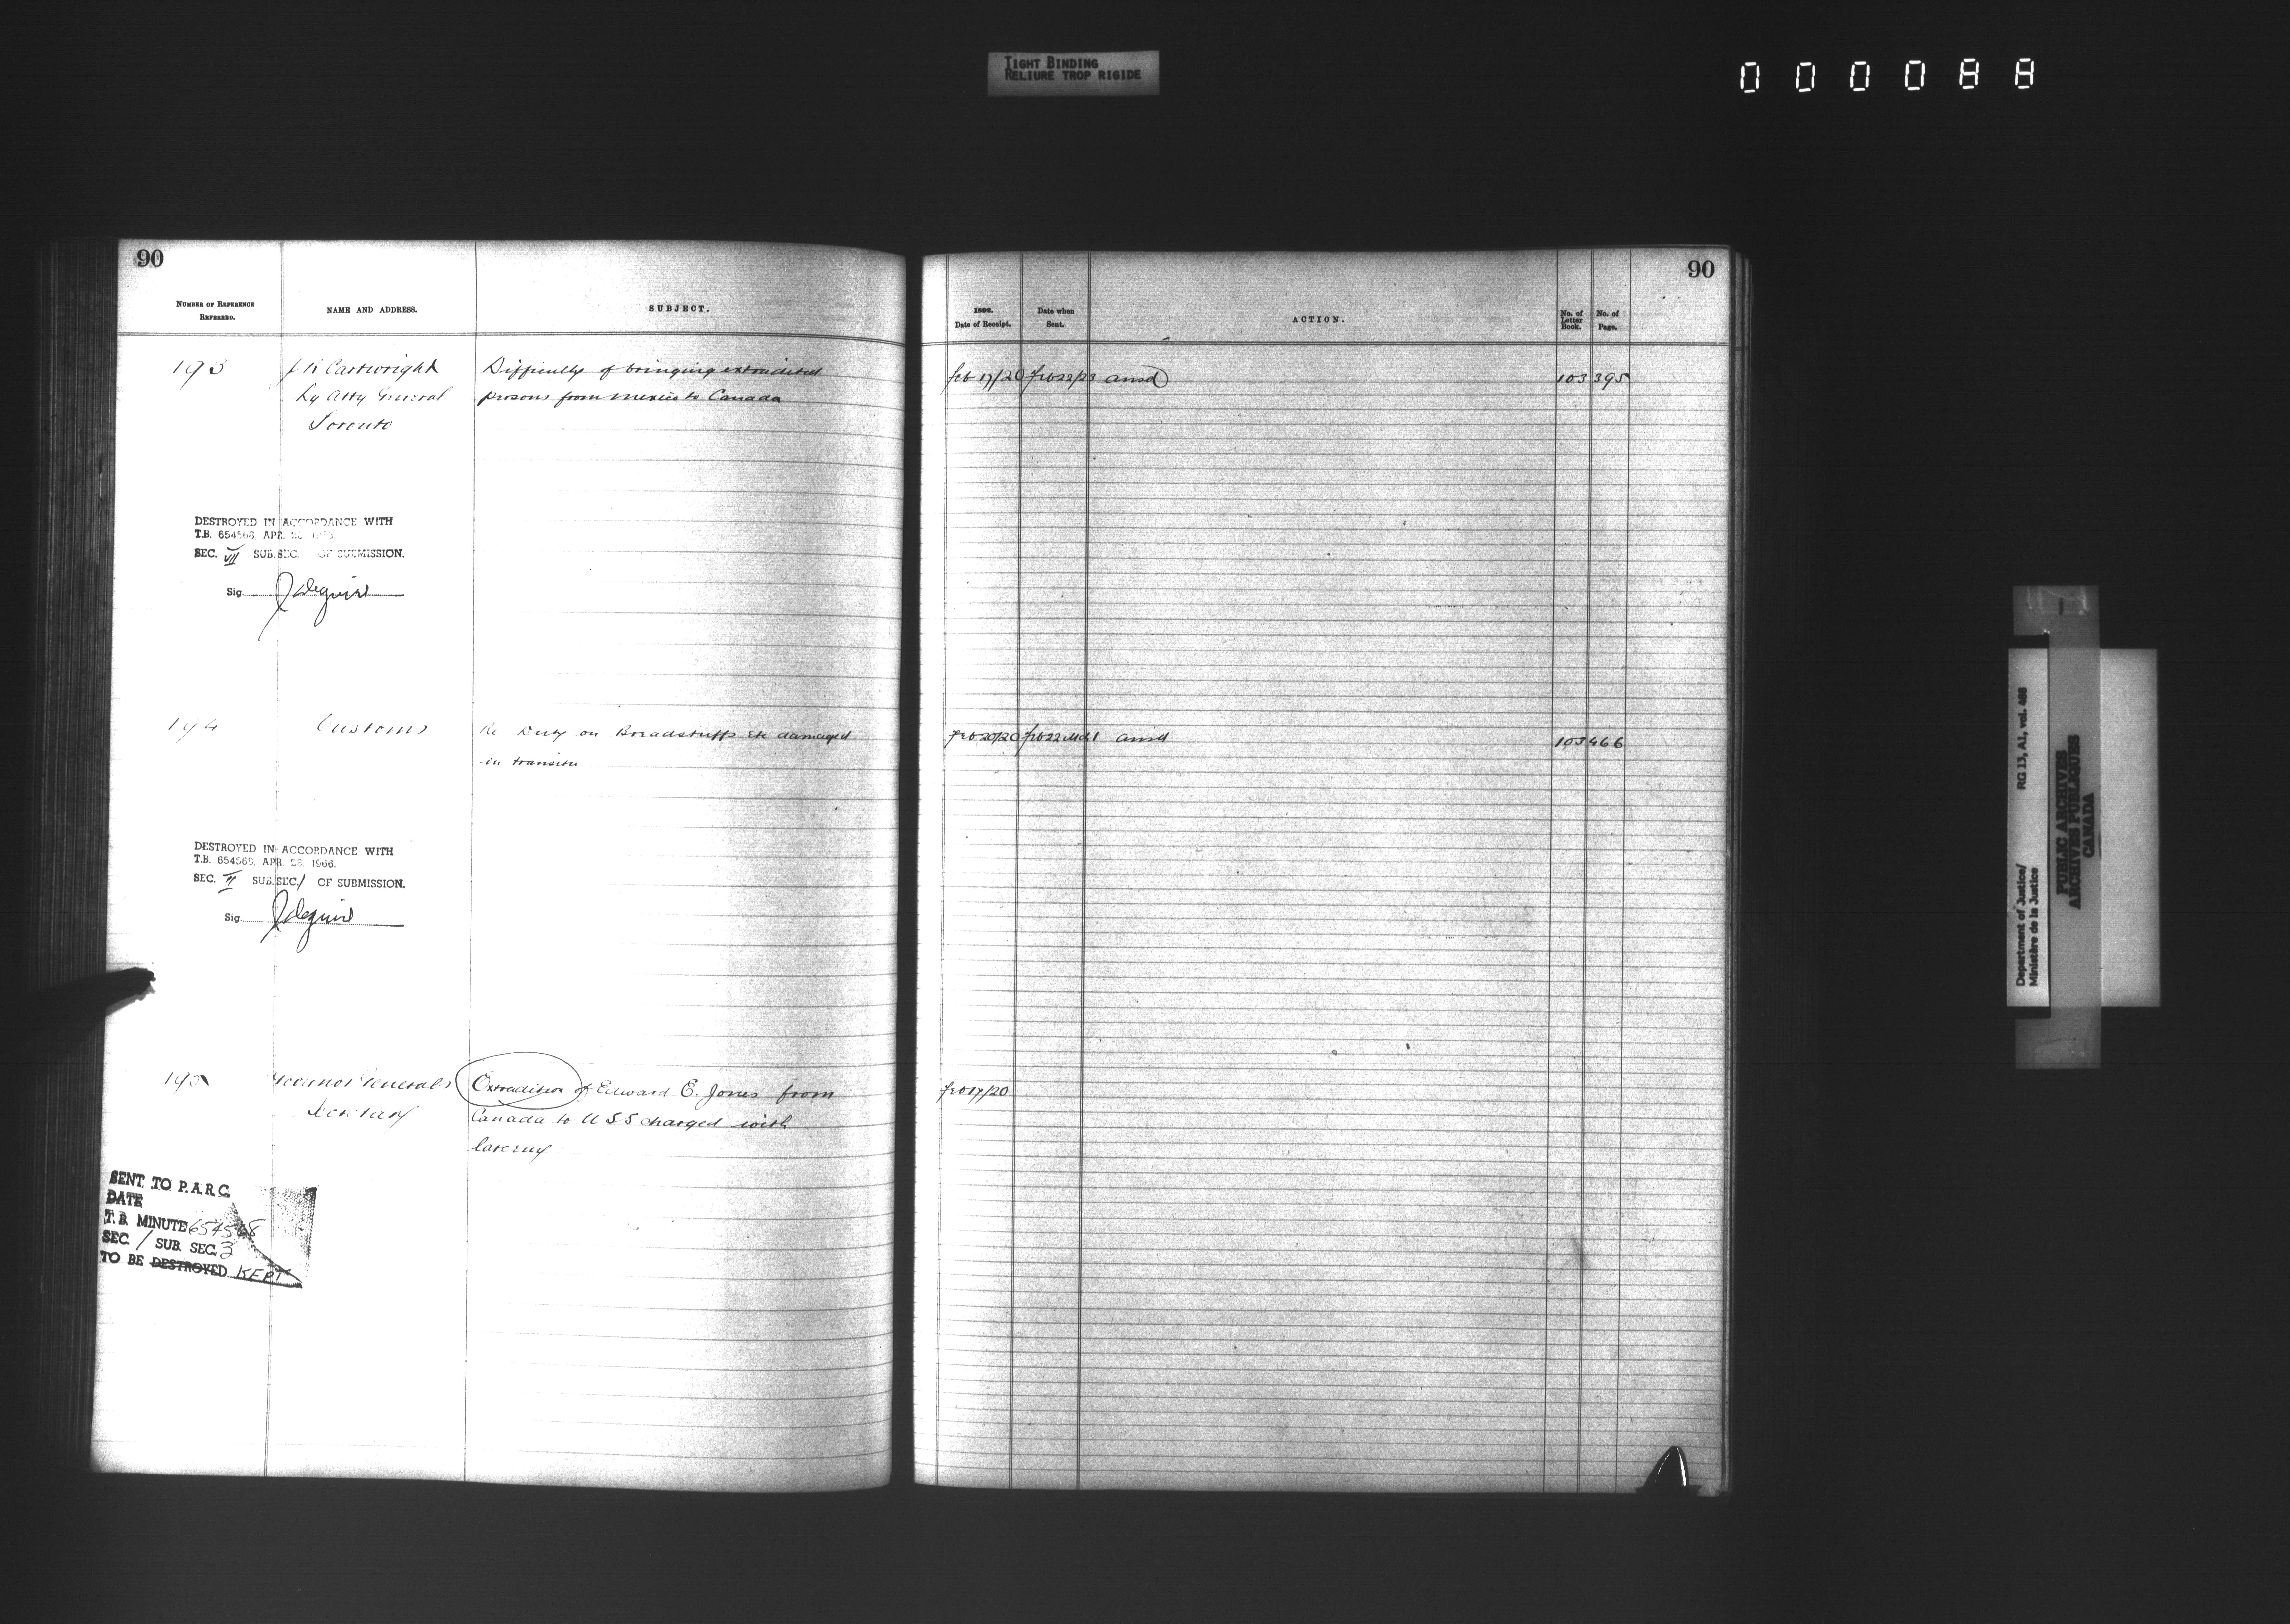 TIGHT BINDING
RELIURE TROP RIGIDE
000088
90
NUMBER OF REFERENCE
REFERRED.
NAME AND ADDRESS.
SUBJECT.
193
J R Cartwright
Dy Atty General
Toronto
Difficulty of bringing extradited
prisons from Mexico to Canada
DESTROYED IN ACCORDANCE WITH
T.B. 654566 APR.
SEC. VII SUB.SEC. OF SUBMISSION.
Sig. J Deguire
194
Customs
Re Duty on Breadstuffs etc damaged
in transitu
DESTROYED IN ACCORDANCE WITH
T.B. 654566. APR. 26. 1966.
SEC. II SUB.SEC. 1 OF SUBMISSION.
Sig. J Deguire
195
Governor Generals
Secretary
Extradition of Edward E. Jones from
Canada to U S S charged with
larceny
SENT TO P.A.R.C.
DATE
T.B. MINUTE 654568
SEC. / SUB. SEC. 3
TO BE DESTROYED KEPT
90
1892.
Date of Receipt.
Date when
Sent.
ACTION.
No. of
Letter
Book.
No. of
Page.
Feb 17/20 Feb 22/23 ansd 103 395
Feb 20/20 Feb 22 Mch 1 ansd 103 466
Feb 17/20
Department of Justice/ RG 13, A1, vol. 488
Ministère de la Justice
PUBLIC ARCHIVES
ARCHIVES PUBLIQUES
CANADA